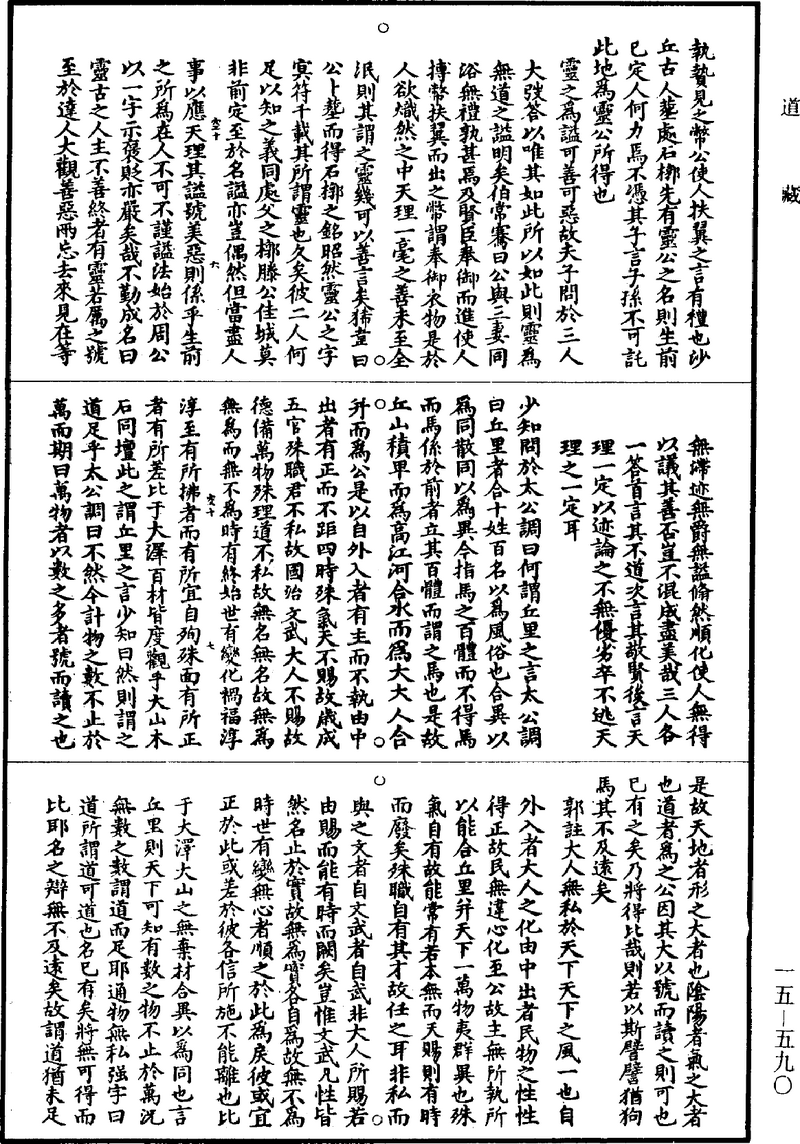 道藏
執贄見之幣公使人扶翼之言有禮也沙
丘古人墓處石槨先有靈公之名則生前
已定人何力焉不憑其子言子孫不可託
此地為靈公所得也
靈之為謚可善可惡故夫子問於三人
大弢答以唯其如此所以如此則靈為
無道之謚明矣伯常騫曰公與三妻同
浴無禮孰甚焉及賢臣奉御而進使人
搏幣扶翼而出之幣謂奉御衣物是於
人欲熾然之中天理一毫之善未至全
泯則其謂之靈幾可以善言矣狶韋曰
公卜塟而得石槨之銘昭然靈公之字
冥符千載其所謂靈也久矣彼二人何
足以知之義同處父之槨滕公佳城莫
非前定至於名謚亦豈偶然但當盡人
事以應天理其謚號美惡則係乎生前
之所為在人不可不謹謚法始於周公
以一字示褒貶亦嚴矣哉不勤成名曰
靈古之人主不善終者有靈若厲之號
至於達人大觀善惡兩忘去來見在等
無滯迹無爵無謚翛然順化使人無得
以議其善否豈不混成盡美哉三人各
一答首言其不道次言其敬賢後言天
理一定以迹論之不無優劣卒不逃天
理之一定耳
少知問於太公調曰何謂丘里之言太公調
曰丘里者合十姓百名以為風俗也合異以
為同散同以為異今指馬之百體而不得馬
而馬係於前者立其百體而謂之馬也是故
丘山積卑而為高江河合水而為大大人合
并而為公是以自外入者有主而不執由中
出者有正而不距四時殊氣天不賜故歲成
五官殊職君不私故國治文武大人不賜故
德備萬物殊理道不私故無名無名故無為
無為而無不為時有終始世有變化禍福淳
淳至有所拂者而有所宜自殉殊面有所正
者有所差比于大澤百材皆度觀乎大山木
石同壇此之謂丘里之言少知曰然則謂之
道足乎太公調曰不然今計物之數不止於
萬而期曰萬物者以數之多者號而讀之也
是故天地者形之大者也陰陽者氣之大者
也道者為之公因其大以號而讀之則可也
已有之矣乃將得比哉則若以斯譬譬猶狗
馬其不及遠矣
郭註大人無私於天下天下之風一也自
外入者大人之化由中出者民物之性性
得正故民無違心化至公故主無所執所
以能合丘里并天下一萬物夷群異也殊
氣自有故能常有若本無而天賜則有時
而廢矣殊職自有其才故任之耳非私而
與之文者自文武者自武非大人所賜若
由賜而能有時而闕矣豈惟文武凡性皆
然名止於實故無為實各自為故無不為
時世有變無心者順之於此為戾彼或宜
正於此或差於彼各信所施不能離也比
于大澤大山之無棄材合異以為同也言
丘里則天下可知有數之物不止於萬況
無數之數謂道而足耶通物無私强字曰
道所謂道可道也名已有矣將無可得而
比耶名之辯無不及遠矣故謂道猶未足
一五—五九〇